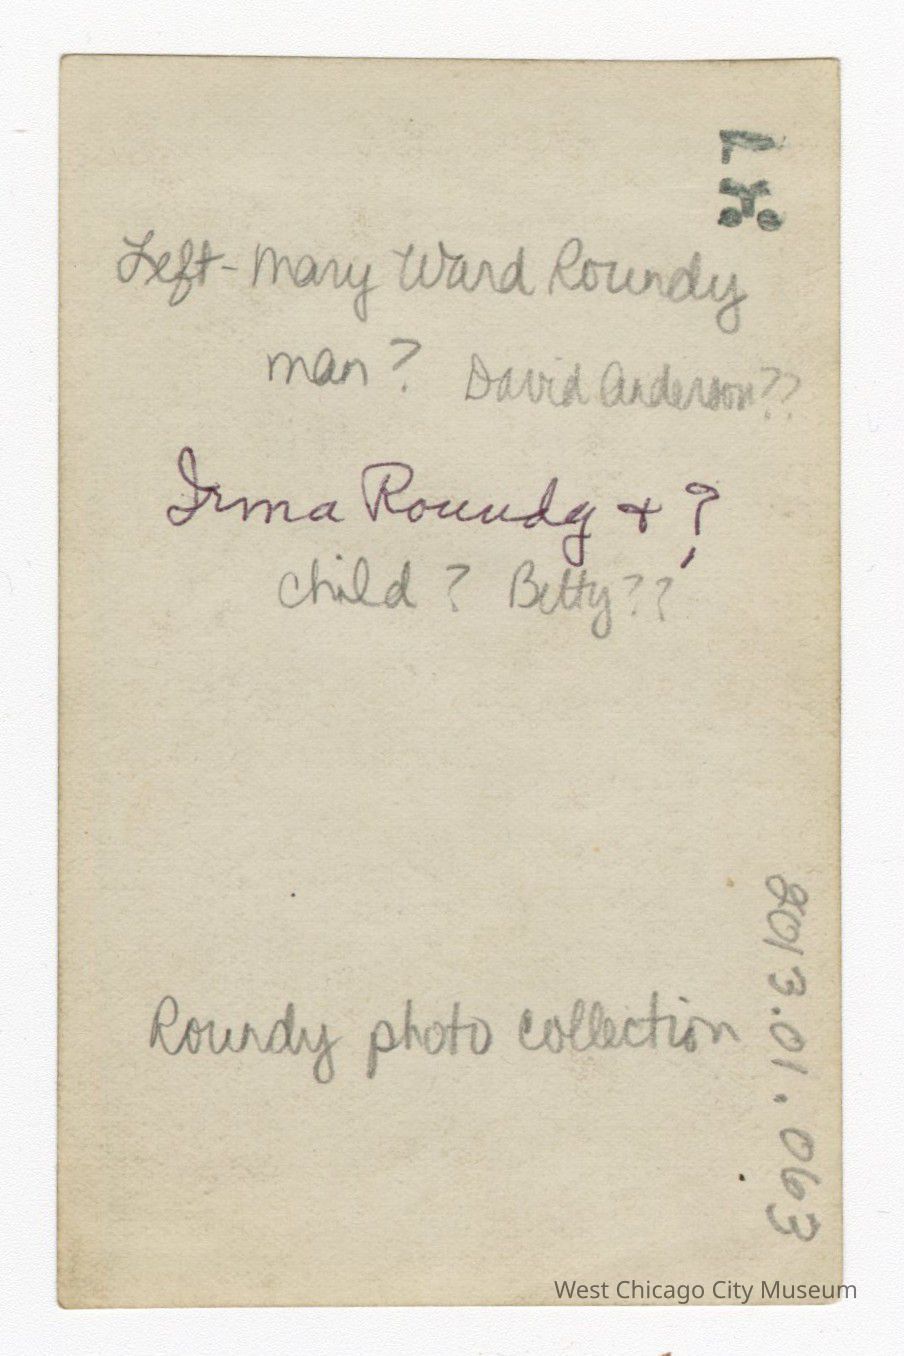 Left - Mary Ward Roundy
man? David Anderson??
Irma Roundy + ?
child? Betty??
Roundy photo collection
2013.01.063
West Chicago City Museum